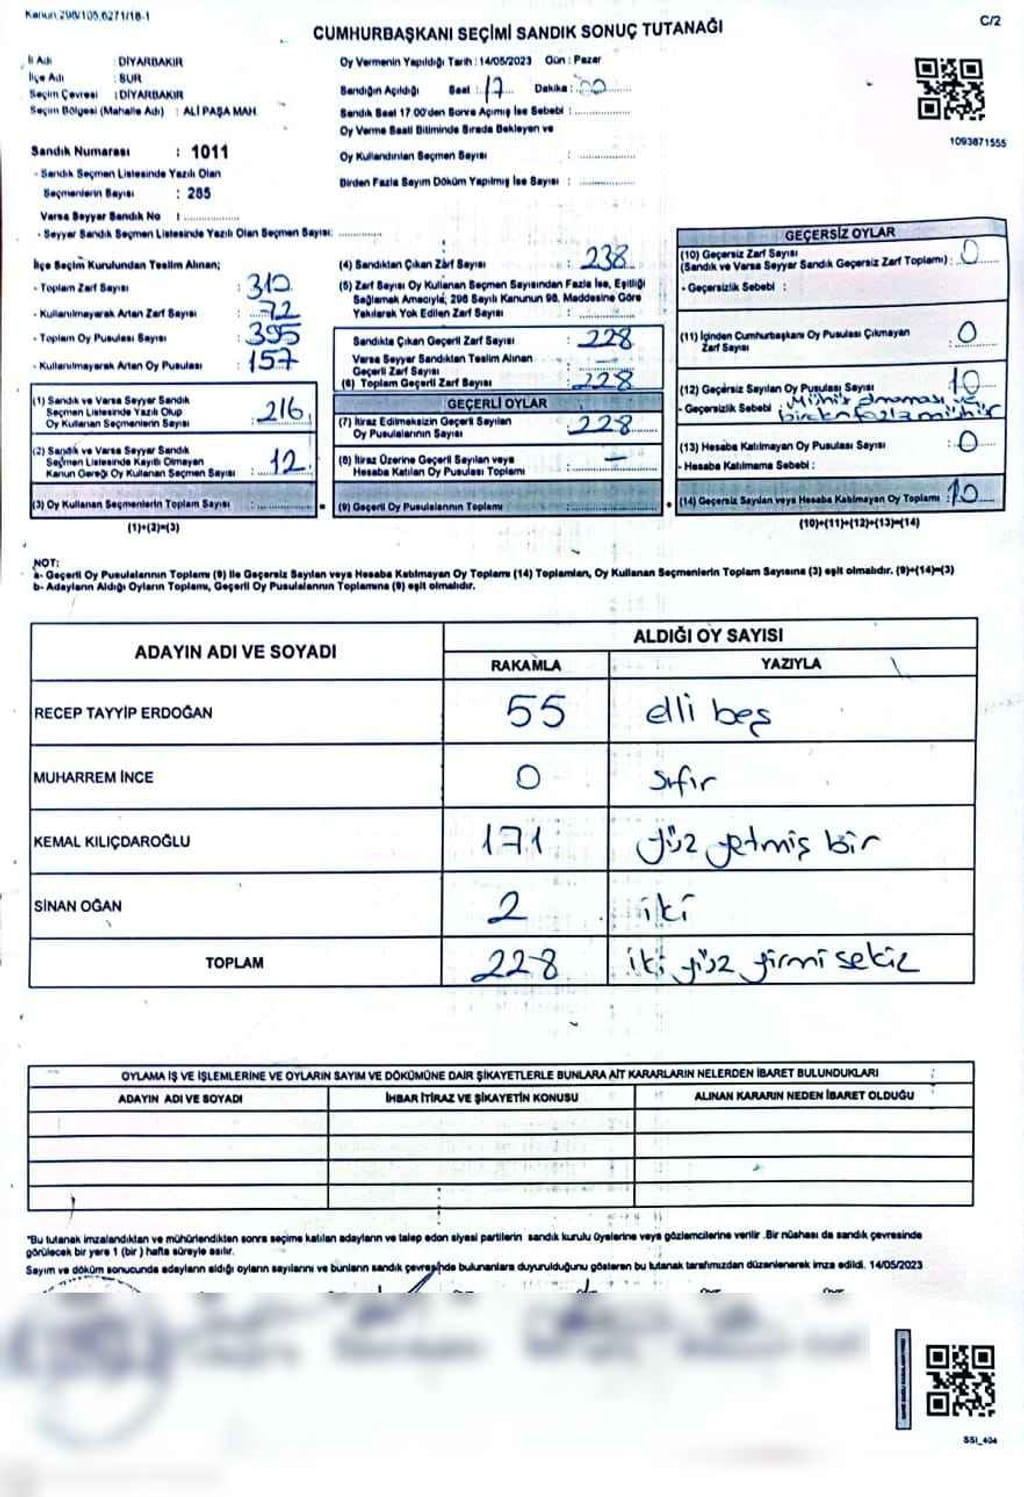 Kanun 298/105,6271/18-1
C/2
CUMHURBAŞKANI SEÇİMİ SANDIK SONUÇ TUTANAĞI
İl Adı : DİYARBAKIR
İlçe Adı : SUR
Seçim Çevresi : DİYARBAKIR
Seçim Bölgesi (Mahalle Adı) : ALİ PAŞA MAH.
Oy Vermenin Yapıldığı Tarih : 14/05/2023 Gün : Pazar
Sandığın Açıldığı Saat : 17 Dakika : 00
Sandık Saat 17.00'den Sonra Açılmış İse Sebebi :
Oy Verme Saati Bitiminde Sırada Bekleyen ve
Oy Kullandırılan Seçmen Sayısı :
Birden Fazla Sayım Döküm Yapılmış İse Sayısı :
1093871555
Sandık Numarası : 1011
- Sandık Seçmen Listesinde Yazılı Olan
Seçmenlerin Sayısı : 285
Varsa Seyyar Sandık No :
- Seyyar Sandık Seçmen Listesinde Yazılı Olan Seçmen Sayısı:
İlçe Seçim Kurulundan Teslim Alınan;
- Toplam Zarf Sayısı : 310
- Kullanılmayarak Artan Zarf Sayısı : 72
- Toplam Oy Pusulası Sayısı : 395
- Kullanılmayarak Artan Oy Pusulası : 157
(1) Sandık ve Varsa Seyyar Sandık
Seçmen Listesinde Yazılı Olup
Oy Kullanan Seçmenlerin Sayısı : 216
(2) Sandık ve Varsa Seyyar Sandık
Seçmen Listesinde Kayıtlı Olmayan
Kanun Gereği Oy Kullanan Seçmen Sayısı : 12
(3) Oy Kullanan Seçmenlerin Toplam Sayısı :
(1)+(2)=(3)
(4) Sandıktan Çıkan Zarf Sayısı : 238
(5) Zarf Sayısı Oy Kullanan Seçmen Sayısından Fazla İse, Eşitliği
Sağlamak Amacıyla, 298 Sayılı Kanunun 98. Maddesine Göre
Yakılarak Yok Edilen Zarf Sayısı :
Sandıkta Çıkan Geçerli Zarf Sayısı : 228
Varsa Seyyar Sandıktan Teslim Alınan
Geçerli Zarf Sayısı :
(6) Toplam Geçerli Zarf Sayısı : 228
GEÇERLİ OYLAR
(7) İtiraz Edilmeksizin Geçerli Sayılan
Oy Pusulalarının Sayısı : 228
(8) İtiraz Üzerine Geçerli Sayılan veya
Hesaba Katılan Oy Pusulası Toplamı : -
(9) Geçerli Oy Pusulalarının Toplamı :
GEÇERSİZ OYLAR
(10) Geçersiz Zarf Sayısı
(Sandık ve Varsa Seyyar Sandık Geçersiz Zarf Toplamı) : 0
- Geçersizlik Sebebi :
(11) İçinden Cumhurbaşkanı Oy Pusulası Çıkmayan
Zarf Sayısı : 0
(12) Geçersiz Sayılan Oy Pusulası Sayısı : 10
- Geçersizlik Sebebi : Mühür olmaması ve
birden fazla mühür
(13) Hesaba Katılmayan Oy Pusulası Sayısı : 0
- Hesaba Katılmama Sebebi :
(14) Geçersiz Sayılan veya Hesaba Katılmayan Oy Toplamı : 10
(10)+(11)+(12)+(13)=(14)
NOT:
a- Geçerli Oy Pusulalarının Toplamı (9) ile Geçersiz Sayılan veya Hesaba Katılmayan Oy Toplamı (14) Toplamları, Oy Kullanan Seçmenlerin Toplam Sayısına (3) eşit olmalıdır. (9)+(14)=(3)
b- Adayların Aldığı Oyların Toplamı, Geçerli Oy Pusulalarının Toplamına (9) eşit olmalıdır.
ADAYIN ADI VE SOYADI
ALDIĞI OY SAYISI
RAKAMLA YAZIYLA
RECEP TAYYİP ERDOĞAN 55 elli beş
MUHARREM İNCE 0 sıfır
KEMAL KILIÇDAROĞLU 171 yüz yetmiş bir
SİNAN OĞAN 2 iki
TOPLAM 228 iki yüz yirmi sekiz
OYLAMA İŞ VE İŞLEMLERİNE VE OYLARIN SAYIM VE DÖKÜMÜNE DAİR ŞİKAYETLERLE BUNLARA AİT KARARLARIN NELERDEN İBARET BULUNDUKLARI
ADAYIN ADI VE SOYADI İHBAR İTİRAZ VE ŞİKAYETİN KONUSU ALINAN KARARIN NEDEN İBARET OLDUĞU
*Bu tutanak imzalandıktan ve mühürlendikten sonra seçime katılan adayların ve talep eden siyasi partilerin sandık kurulu üyelerine veya gözlemcilerine verilir .Bir nüshası da sandık çevresinde
görülecek bir yere 1 (bir ) hafta süreyle asılır.
Sayım ve döküm sonucunda adayların aldığı oyların sayılarını ve bunların sandık çevresinde bulunanlara duyurulduğunu gösteren bu tutanak tarafımızdan düzenlenerek imza edildi. 14/05/2023
SSI_404